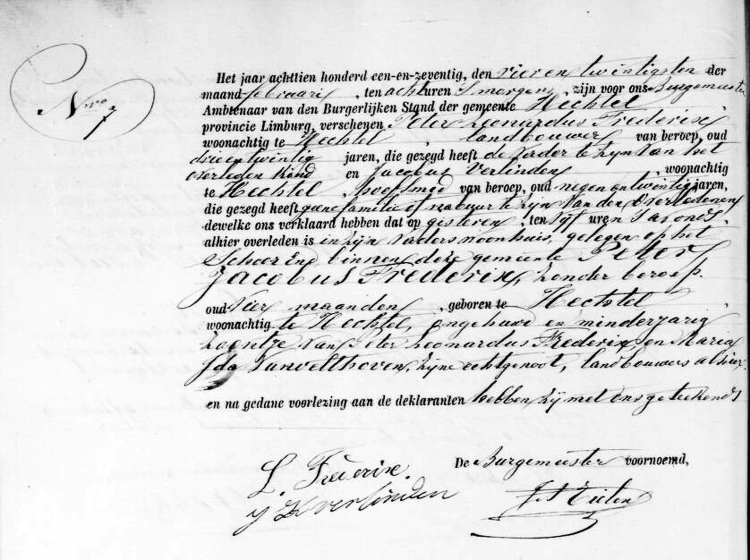 Nro 7
Het jaar achttien honderd een-en-zeventig, den vier en twintigsten der
maand februari, ten acht uren s'morgens, zijn voor ons Burgemeester
Ambtenaar van den Burgerlijken Stand der gemeente Hechtel
provincie Limburg, verschenen Peter Leonardus Frederix
woonachtig te Hechtel, landbouwer van beroep, oud
drie en twintig jaren, die gezegd heeft de vader te zijn van het
overleden kind en Jacobus Verlinden, woonachtig
te Hechtel, hoefsmid van beroep, oud negen en twintig jaren,
die gezegd heeft geene familie of nabuur te zijn van den Overledenen
dewelke ons verklaard hebben dat op gisteren, ten vijf uren s'avonds,
alhier overleden is in zijn vaders woonhuis, gelegen op het
Schoor End binnen deze gemeente Peter
Jacobus Frederix, zonder beroep.
oud vier maanden, geboren te Hechtel
woonachtig te Hechtel, ongehuwd en minderjarig
zoontje van Peter Leonardus Frederix en Maria
Ida Vanvelthoven, zijne echtgenoot, landbouwers alhier.
en na gedane voorlezing aan de deklaranten hebben zij met ons geteekend
De Burgemeester voornoemd,
L. Frederix.
Verlinden